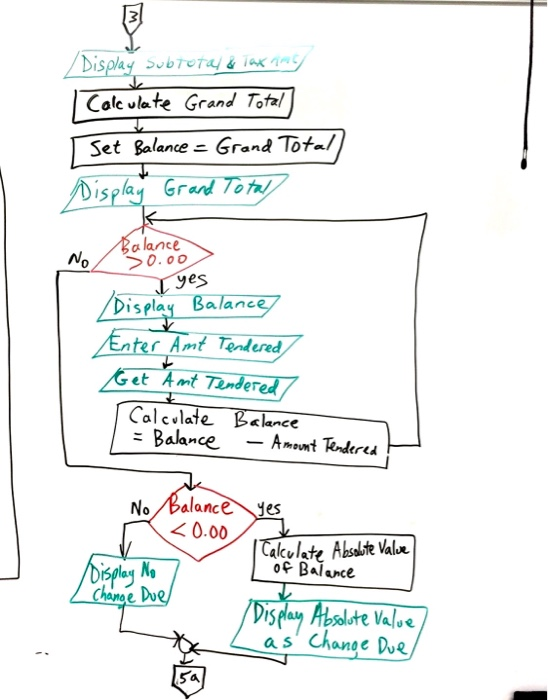 3
Display Subtotal & Tax Amt
Calculate Grand Total
Set Balance = Grand Total
Display Grand Total
Balance
> 0.00
No
yes
Display Balance
Enter Amt Tendered
Get Amt Tendered
Calculate Balance
= Balance - Amount Tendered
No
Balance
< 0.00
yes
Display No
Change Due
Calculate Absolute Value
of Balance
Display Absolute Value
as Change Due
5a